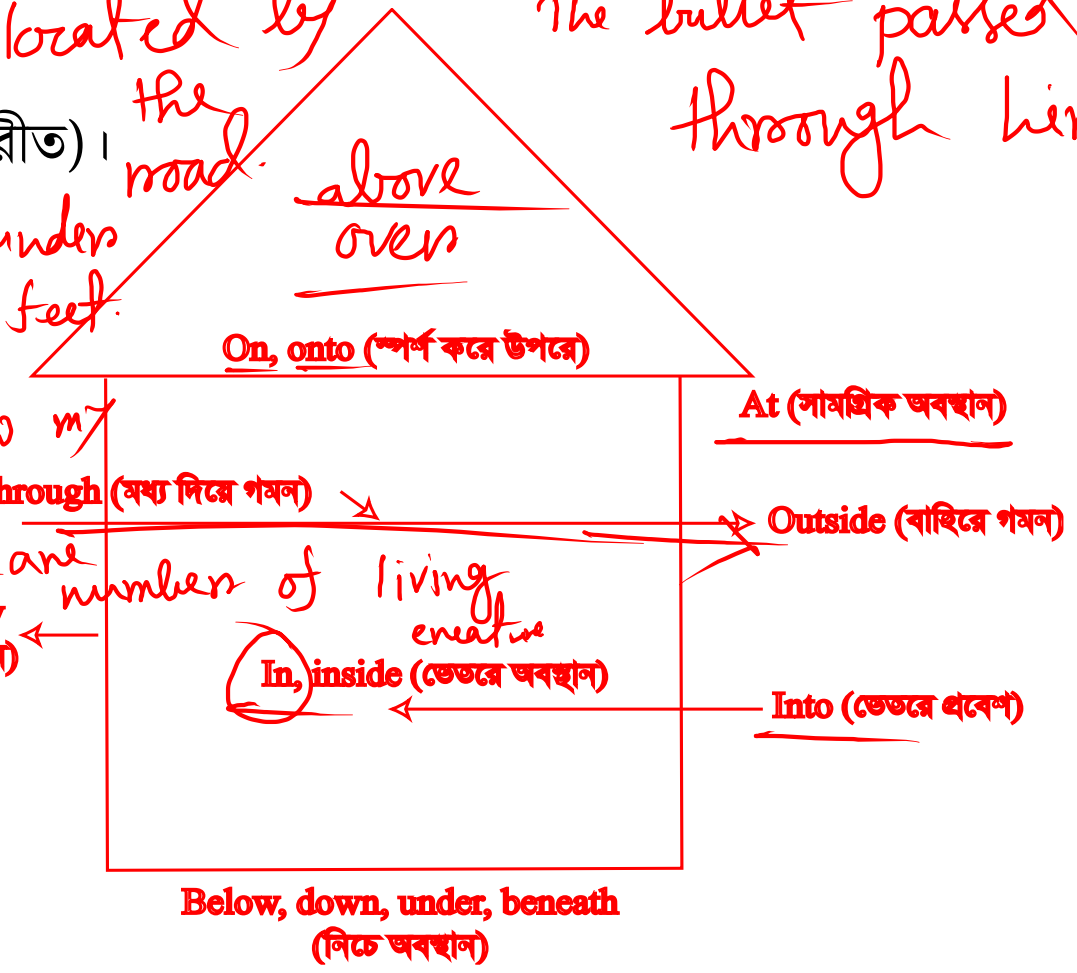 located by
The bullet passed
the
through
road.
রীত)।
above
under
over
feet.
On, onto (স্পর্শ করে উপরে)
At (সামগ্রিক অবস্থান)
my
hrough (মধ্য দিয়ে গমন)
Outside (বাহিরে গমন)
are
numbers of living
creature
In, inside (ভেতরে অবস্থান)
Into (ভেতরে প্রবেশ)
Below, down, under, beneath
(নিচে অবস্থান)